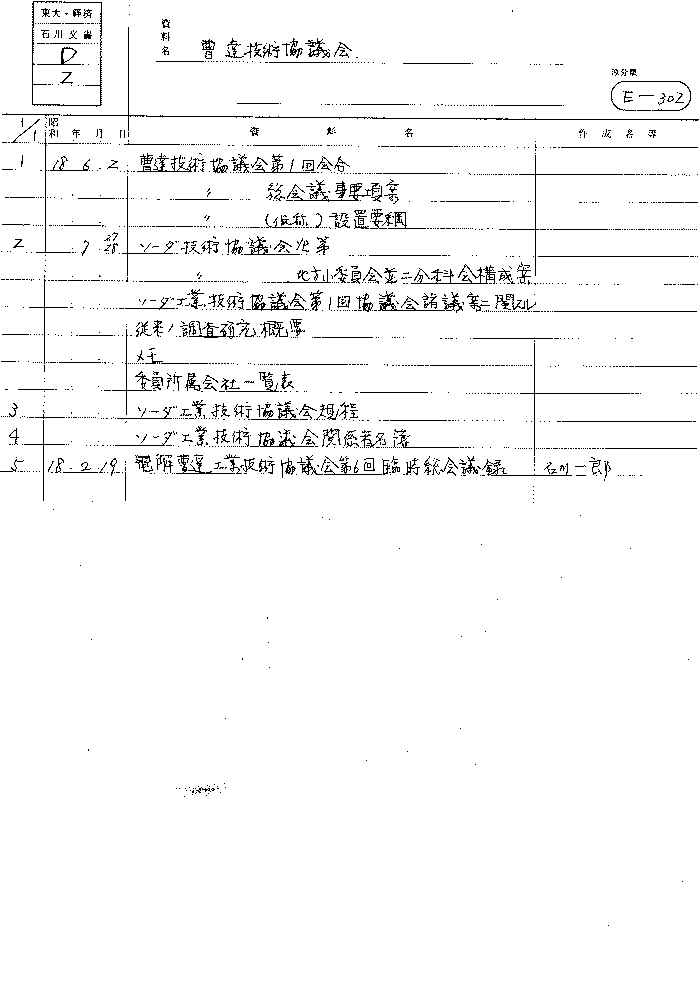 東大・経済
石川文書
D
Z
資料名 曹達技術協議会
原分類
E-302
1/1 昭和 年 月 日 資料名 作成者等
1 18 6 2 曹達技術協議会第1回会合
〃 総会議事要項案
〃 (仮称)設置要綱
2 7 27 28 ソーダ技術協議会次第
〃 地方小委員会並ニ分科会構成案
ソーダ工業技術協議会第1回協議会諮議案ニ関スル
従来ノ調査研究概要
メモ
委員所属会社一覧表
3 ソーダ工業技術協議会規程
4 ソーダ工業技術協議会関係者名簿
5 18.2.19 電解曹達工業技術協議会第6回臨時総会議録 石川一郎